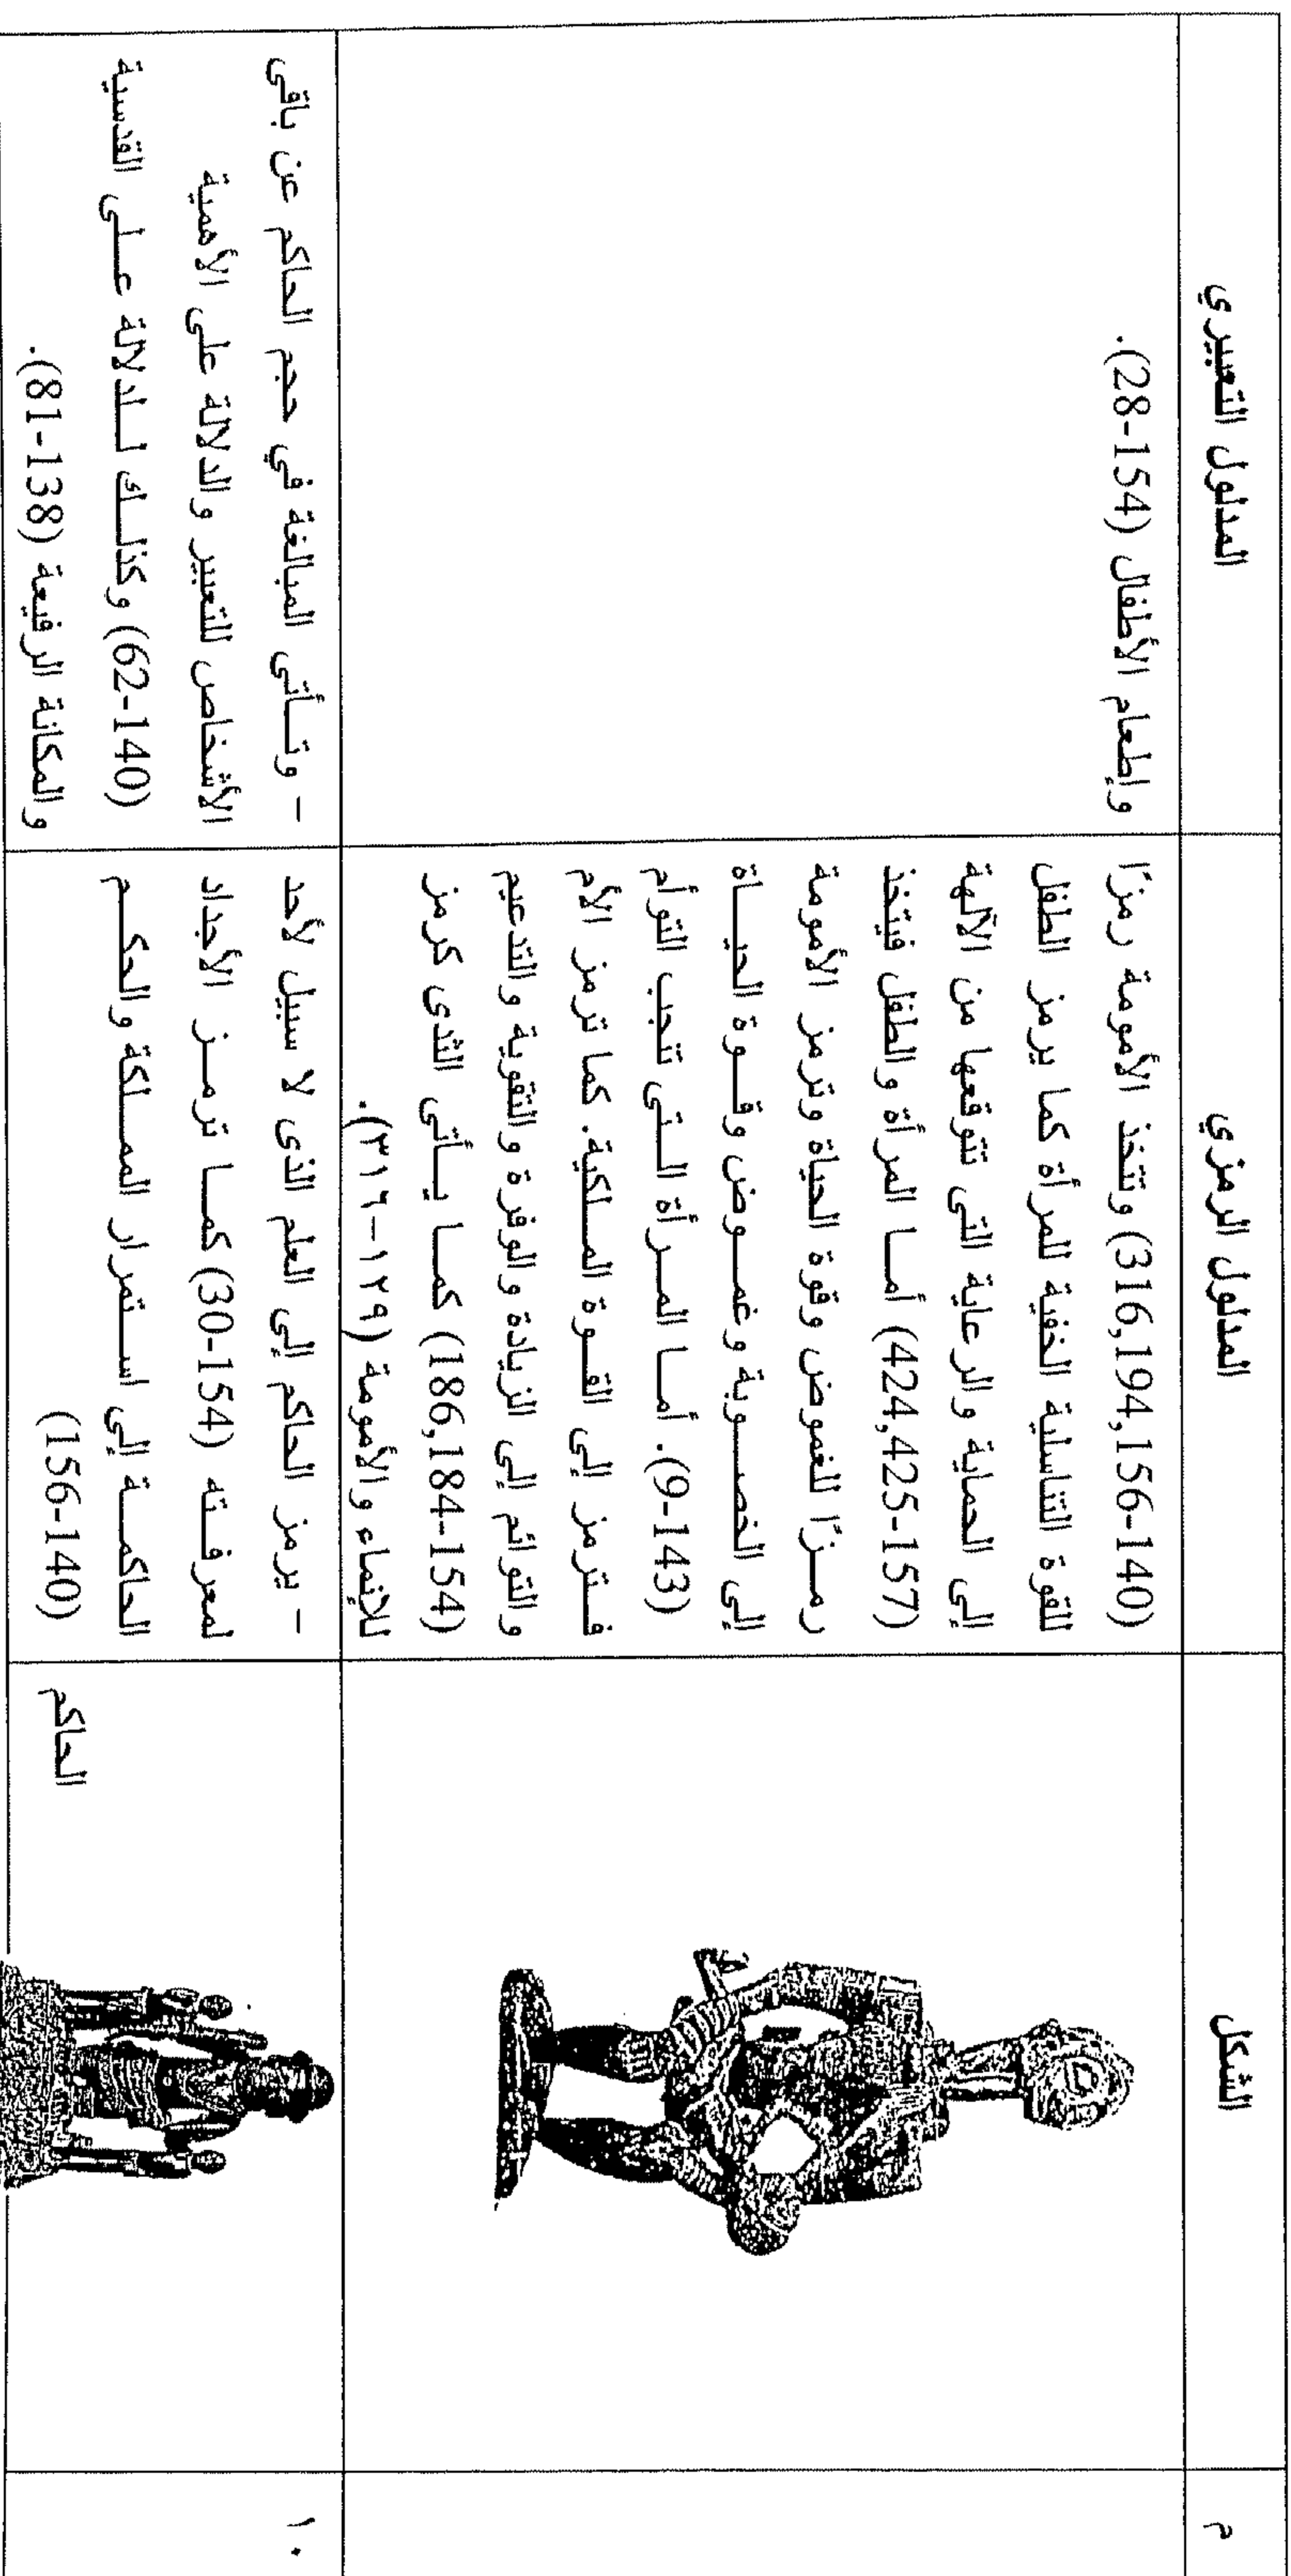 م
الشكل
المدلول الرمزي
المدلول التعبيري
(316,194,156-140) وتتخذ الأمومة رمزًا
للقوة التناسلية الخفية للمرأة كما يرمز الطفل
إلى الحماية والرعاية التى تتوقعها من الآلهة
(424,425-157) أمـــا المرأة والطفل فيتخذ
رمـــزًا للغموض وقوة الحياة وترمز الأمومة
إلى الخصـــوبة وغمـــوض وقـــوة الحيـــاة
(9-143). أمـــا المـــرأة الـــتى تنجب التوأم
فـــترمز إلى القـــوة المـــلكية. كما ترمز الأم
والتوائم إلى الزيادة والوفرة والتقوية والتدعيم
(186,184-154) كمـــا يـــأتى الثدى كرمز
للإنماء والأمومة (١٢٩-٣١٦).
وإطعام الأطفال (154-28).
١٠
الحاكم
- يرمز الحاكم إلى العلم الذى لا سبيل لأحد
لمعرفـــته (30-154) كمـــا ترمـــز الأجداد
الحاكمـــة إلى اســـتمرار الممـــلكة والحكـــم
(156-140)
- وتـــأتى المبالغة في حجم الحاكم عن باقى
الأشخاص للتعبير والدلالة على الأهمية
(62-140) وكذلـــك لـــدلالة عـــلى القدسية
والمكانة الرفيعة (81-138).